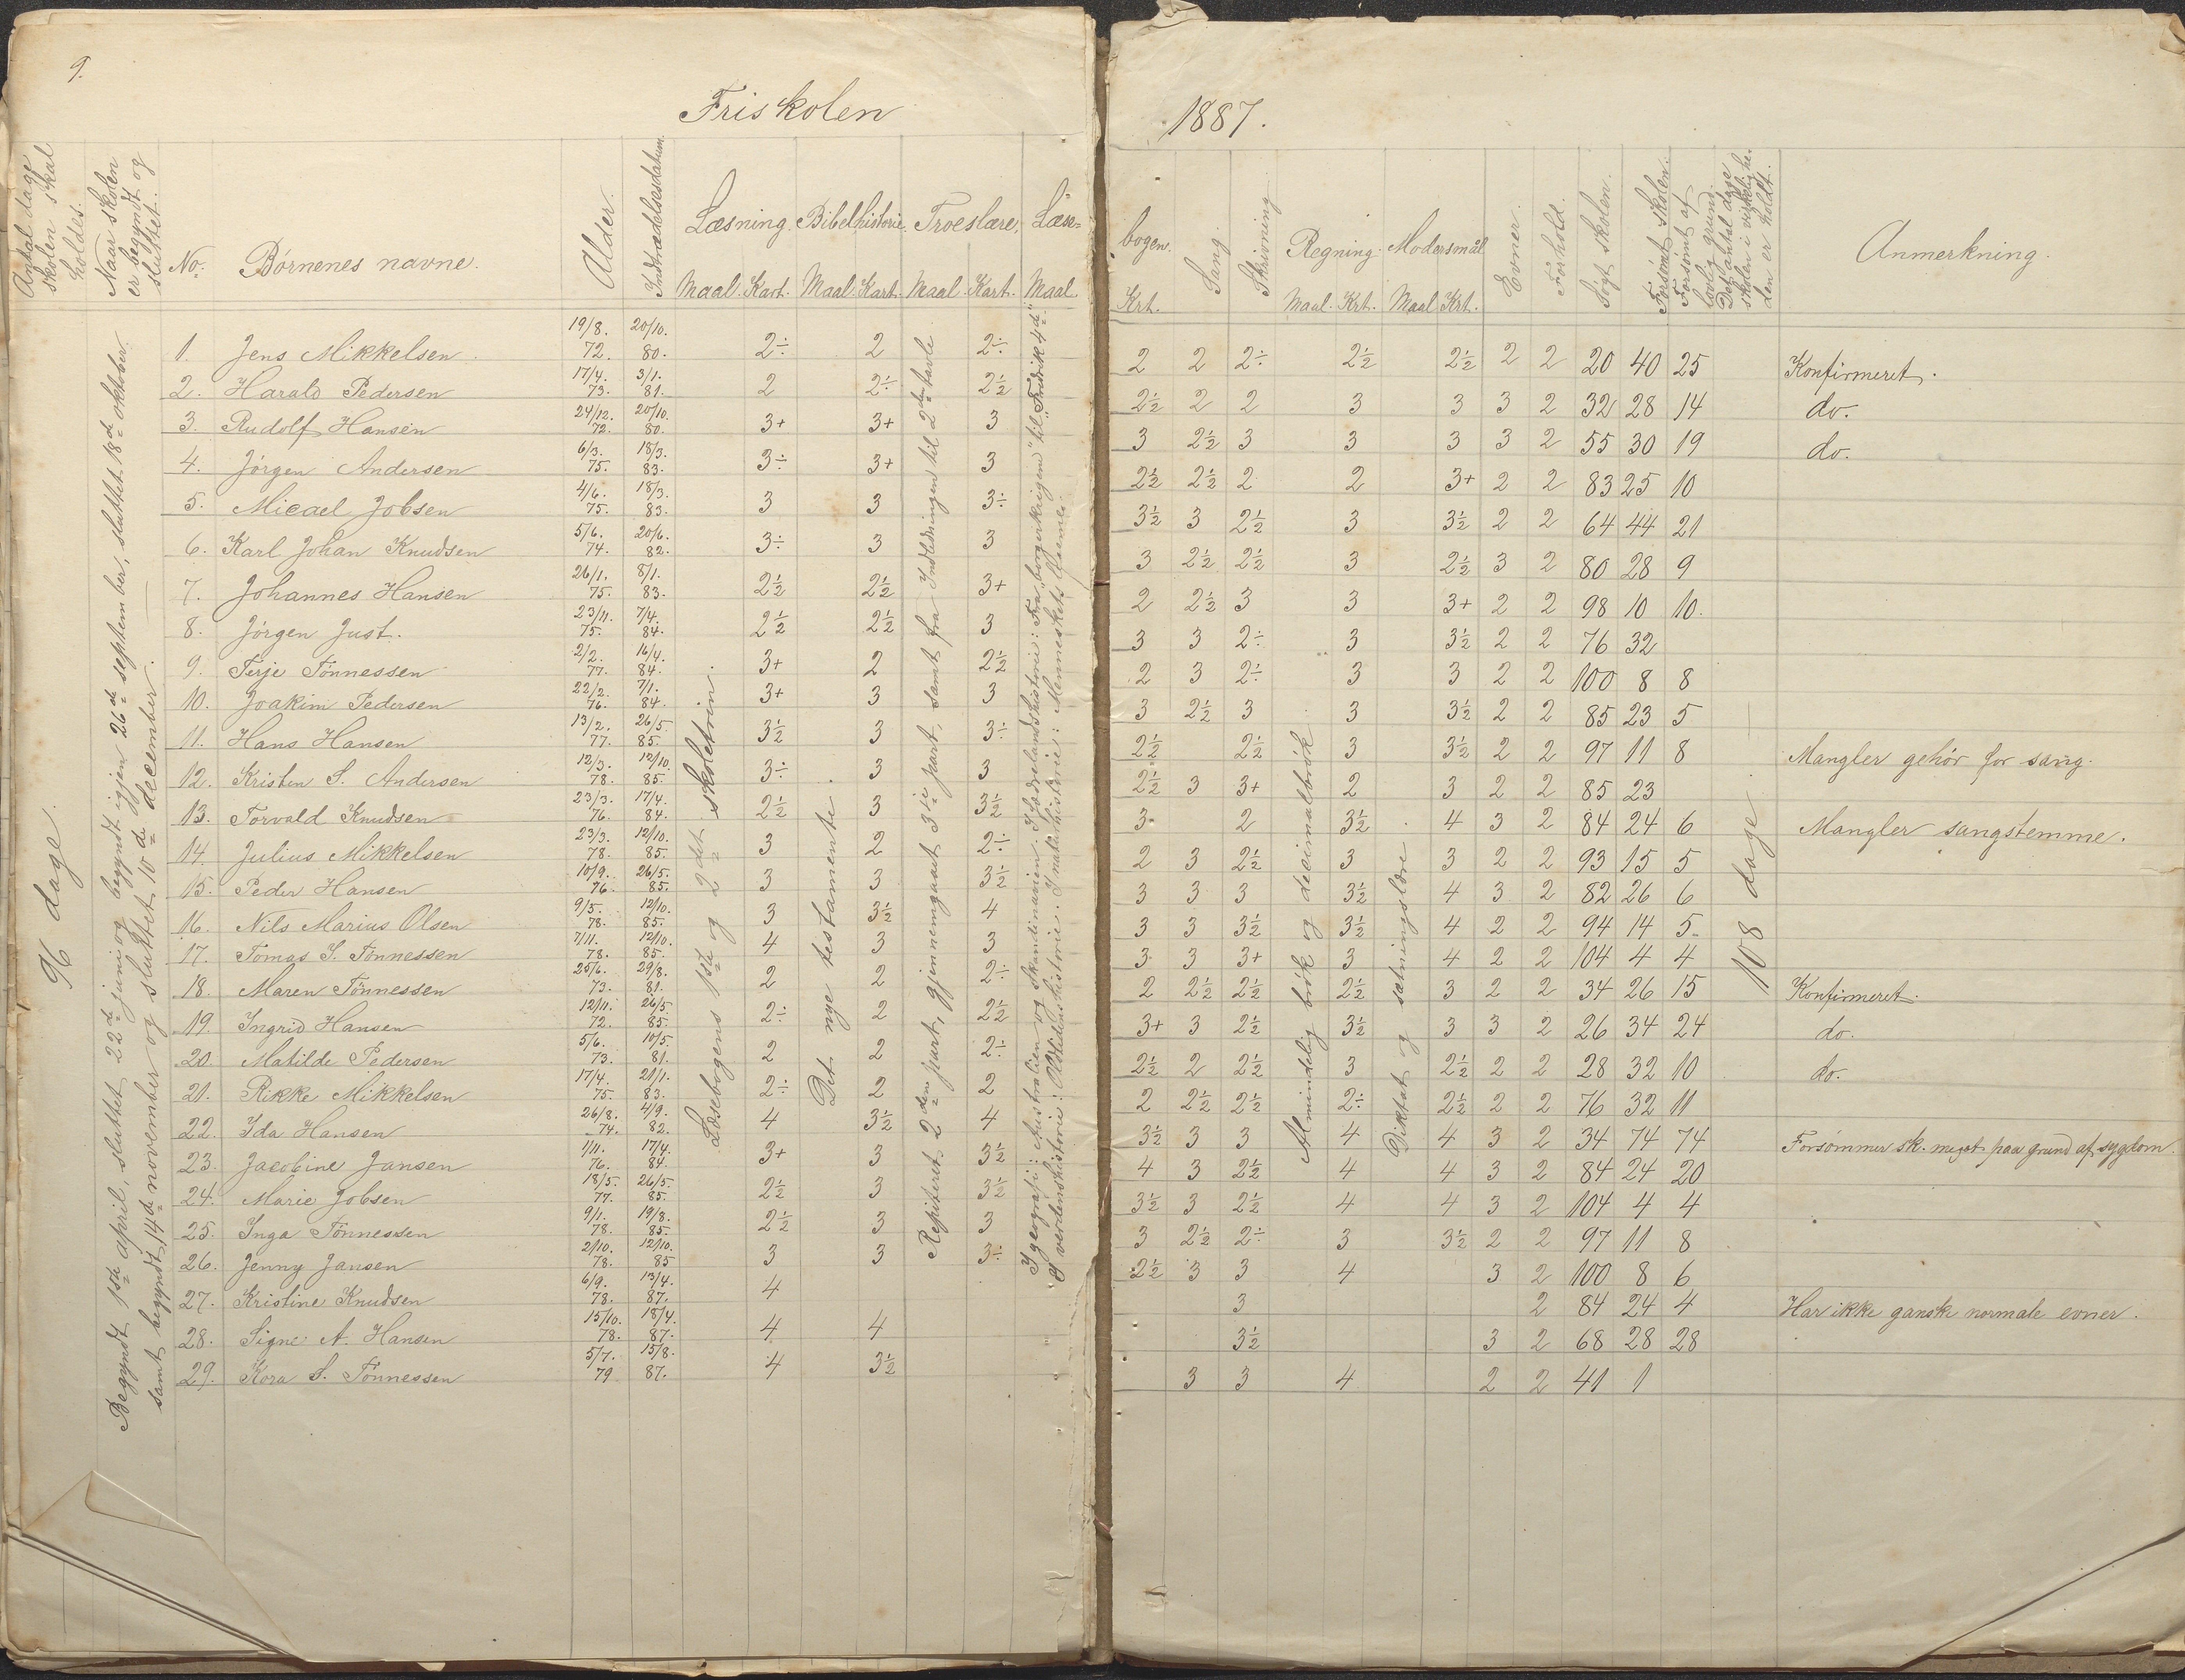 9.
Friskolen
1887.
Antal dage skolen skal holdes.
Naar skolen er begyndt og sluttet.
No.
Børnenes navne.
Alder.
Indtrædelsesdatum.
Læsning. Maal. Kart.
Bibelhistorie. Maal. Kart.
Troeslære. Maal. Kart.
Læse- Maal.
bogen. Krt.
Sang.
Skrivning
Regning. Maal. Krt.
Modersmål Maal Krt.
Evner.
Forhold.
Søgt skolen.
Forsømt skolen.
Forsømt af lovlig grund.
Det antal dage skolen i virkelighe- den er holdt.
Anmerkning.
96 dage.
Begyndt 1ste april, sluttet 22de juni og begyndt igjen 26de september, sluttet 18de oktober
samt begyndt 14de november og sluttet 10de december.
Læsebogens 1ste og 2det skoletrin.
Det nye testamente.
Repiteret 2den part, gjennemgaaet 3die part, samt fra Indledningen til 2den tavle
I geografi: Australien og Skandinavien. I Fædrelandshistorie: Fra „borgerkrigene" til „Fredrik 4de"
og verdenshistorie: Oldtidens historie. I naturhistorie: Menneskets legeme.
Almindelig brøk og decimalbrøk
Diktat og sætningslære.
108 dage
1. Jens Mikkelsen 19/8. 72. 20/10. 80. 2÷ 2 2÷ 2 2 2÷ 2½ 2½ 2 2 20 40 25 Konfirmeret.
2. Harald Pedersen 17/4. 73. 3/1. 81. 2 2÷ 2½ 2½ 2 2 3 3 3 2 32 28 14 do.
3. Rudolf Hansen 24/12. 72. 20/10. 80. 3+ 3+ 3 3 2½ 3 3 3 3 2 55 30 19 do.
4. Jørgen Andersen 6/3. 75. 18/3. 83. 3÷ 3+ 3 2½ 2½ 2 2 3+ 2 2 83 25 10
5. Micael Jobsen 4/6. 75. 18/3. 83. 3 3 3÷ 3½ 3 2½ 3 3½ 2 2 64 44 21
6. Karl Johan Knudsen 5/6. 74. 20/6. 82. 3÷ 3 3 3 2½ 2½ 3 2½ 3 2 80 28 9
7. Johannes Hansen 26/1. 75. 8/1. 83. 2½ 2½ 3+ 2 2½ 3 3 3+ 2 2 98 10 10.
8. Jørgen Just. 23/11. 75. 7/4. 84. 2½ 2½ 3 3 3 2÷ 3 3½ 2 2 76 32
9. Terje Tønnessen 2/2. 77. 16/4. 84. 3+ 2 2½ 2 3 2÷ 3 3 2 2 100 8 8
10. Joakim Pedersen 22/2. 76. 7/1. 84. 3+ 3 3 3 2½ 3 3 3½ 2 2 85 23 5
11. Hans Hansen 13/2. 77. 26/5. 85. 3½ 3 3÷ 2½ 2½ 3 3½ 2 2 97 11 8 Mangler gehør for sang.
12. Kristen S. Andersen 12/3. 78. 12/10. 85. 3÷ 3 3 2½ 3 3+ 2 3 2 2 85 23
13. Torvald Knudsen 23/3. 76. 17/4. 84. 2½ 3 3½ 3 2 3½ 4 3 2 84 24 6 Mangler sangstemme.
14. Julius Mikkelsen 23/3. 78. 12/10. 85. 3 2 2÷ 2 3 2½ 3 3 2 2 93 15 5
15. Peder Hansen 10/9. 76. 26/5. 85. 3 3 3½ 3 3 3 3½ 4 3 2 82 26 6
16. Nils Marius Olsen 9/5. 78. 12/10. 85. 3 3½ 4 3 3 3½ 3½ 4 2 2 94 14 5
17. Tomas S. Tønnessen 7/11. 78. 12/10. 85. 4 3 3 3 3 3+ 3 4 2 2 104 4 4
18. Maren Tønnessen 25/6. 73. 29/8. 81. 2 2 2÷ 2 2½ 2½ 2½ 3 2 2 34 26 15 Konfirmeret.
19. Ingrid Hansen 12/11. 72. 26/5. 85. 2÷ 2 2½ 3+ 3 2½ 3½ 3 3 2 26 34 24 do.
20. Matilde Pedersen 5/6. 73. 10/5. 81. 2 2 2÷ 2½ 2 2½ 3 2½ 2 2 28 32 10 do.
21. Rikke Mikkelsen 17/4. 75. 21/1. 83. 2÷ 2 2 2 2½ 2½ 2÷ 2½ 2 2 76 32 11
22. Ida Hansen 26/8. 74. 4/9. 82. 4 3½ 4 3½ 3 3 4 4 3 2 34 74 74 Forsømmer sk. meget paa grund af sygdom.
23. Jacobine Jansen 1/11. 76. 17/4. 84. 3+ 3 3½ 4 3 2½ 4 4 3 2 84 24 20
24. Marie Jobsen 18/5. 77. 26/5. 85. 2½ 3 3½ 3½ 3 2½ 4 4 3 2 104 4 4
25. Inga Tønnessen 9/1. 78. 19/8. 85. 2½ 3 3 3 2½ 2÷ 3 3½ 2 2 97 11 8
26. Jenny Jansen 2/10. 78. 12/10. 85 3 3 3÷ 2½ 3 3 4 3 2 100 8 6
27. Kristine Knudsen 6/9. 78. 13/4. 87. 4 3 2 84 24 4 Har ikke ganske normale evner.
28. Signe A. Hansen 15/10. 78. 18/4. 87. 4 4 3½ 3 2 68 28 28
29. Kora S. Tønnessen 5/7. 79 15/8. 87. 4 3½ 3 3 4 2 2 41 1